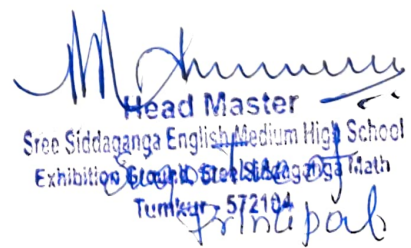 Head Master
Sree Siddaganga English Medium High School
Exhibition Ground, Sree Siddaganga Math
Tumkur - 572104
Principal